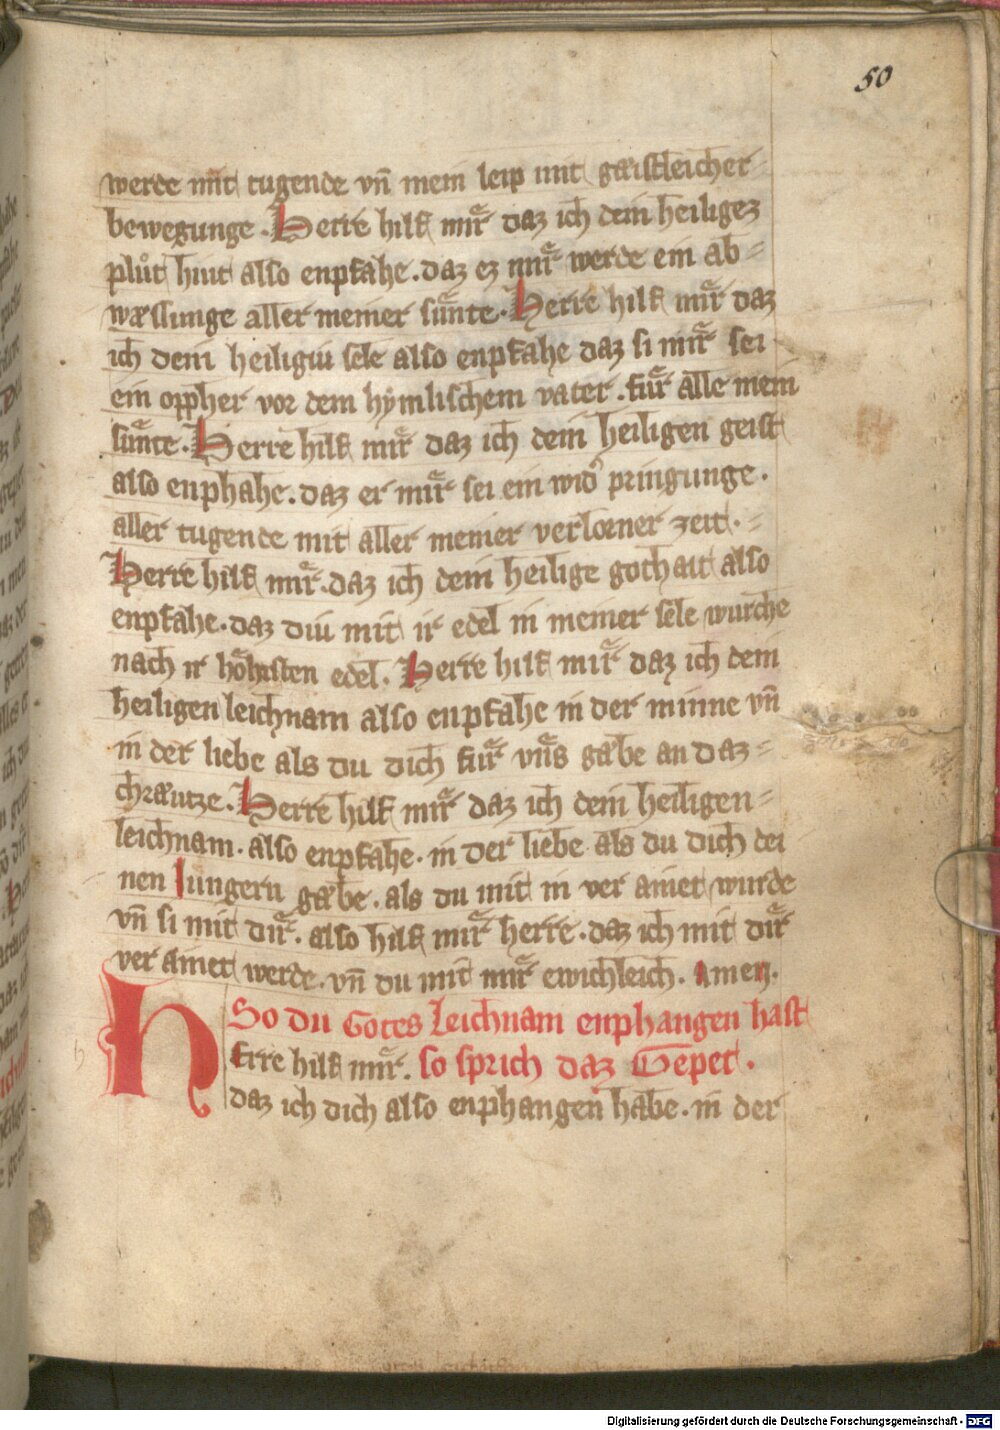 50
werde mit tugende vn̄ mein leip mit gæistleicher
bewegunge. Herre hilf mir daz ich dein heiligez
plůt hiut also enpfahe. daz ez mir werde ein ab=
wæsslunge aller meiner sünte. Herre hilf mir daz
ich dein heiligiu sele also enpfahe daz si mir sei
ein oppher vor dem hymlischem vater. für alle mein
sünte. Herre hilf mir daz ich dein heiligen geist
also enphahe. daz er mir sei ein wid' pringunge.
aller tugende mit aller meiner verlorner zeit.=
Herre hilf mir. daz ich dein heilige gothait also
enpfahe. daz diu mit ir edel in meiner sele wurche
nach ir höhsten edel. Herre hilf mir daz ich dein
heiligen leichnam also enpfahe in der minne vn̄
in der liebe als du dich für vns gæbe an daz=
chræutze. Herre hilf mir daz ich dein heiligen=
leichnam. also enpfahe. in der liebe als du dich dei
nen Jungern gæbe. als du mit in ver ainet wurde
vn̄ si mit dir. also hilf mir herre. daz ich mit dir
ver ainet werde. vn̄ du mit mir ewichleich. Amen.
So du Gotes Leichnam enphangen hast
Herre hilf mir. so sprich daz Gepet.
daz ich dich also enphangen habe. in der
Digitalisierung gefördert durch die Deutsche Forschungsgemeinschaft - DFG